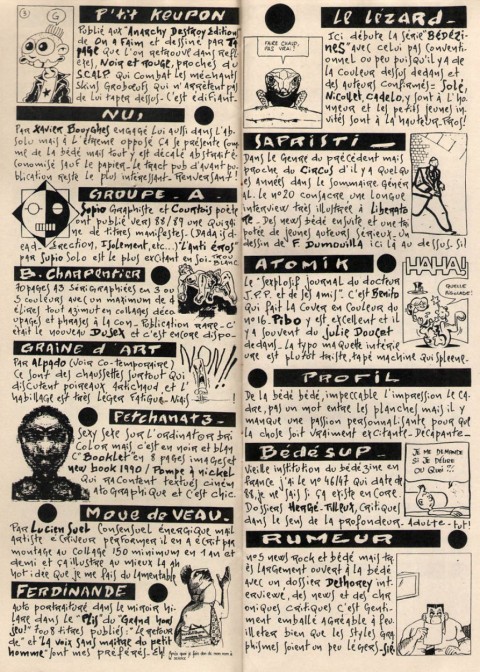 P'tit Keupon
Publié aux "Anarchy Destroy Edition"
de On a Faim et dessiné par
page que l'on retrouve dans Ref
lexes, Noir et Rouge, proches du
SCALP qui combat les méchants
Skins Groboeufs qui n'arrêtent pas
de lui taper dessus - C'est édifiant -
NU,
Par Xavier Bouyghes engagé lui aussi dans l'ab
solu mais à l'extrême opposé ça se présente com
me de la bédé mais tout y est décalé abstrait é-
conomisé sauf le papier. Le tract pub d'avant pu-
blication reste le plus intéressant - Renversant!
GROUPE - A -
Supio Graphiste et Courtois poète
ont publié vers 88/89 une quinzai
ne de titres manifestes. (Dada is d
ead - Erection, Isolement, etc...) L'anti éros
par Supio Solo est le plus excitant en soi.
TROU
BLANC
B. Charpentier
10 pages A3 sérigraphiées en 3 ou
5 couleurs avec un maximum de d
élires tout azimut en collages déco
upages et phrases à la con - Publication rare - C'
était le nouveau Dusex et c'est encore dispo -
GRAINE d'ART
NON!!
Par Alpado (voir Co-temporaire)
Ce sont des chaussettes surtout qui
discutent poireaux artichaud et l'
habillage est très léger Fatigue - Mais
!
Petchanatz -
Sexy sexe sur l'ordinator bri
color mais c'est en noir et blan
c "Booklet" en 8 pages images et
new book 1990 / Pompe à nickel
qui racontent textuel ciném
atographique et c'est chic.
Moue de VEAU -
Par Lucien Suel consensuel énergique mail
artiste écriveur performer il en a écrit par
montage au collage 150 minimum en 1 an et
demi et ça illustre au mieux la ah
hot idée que je me fais du lamentable
FERDINANDE
Auto portraituré dans le miroir hi-
lare dans le "Plis du Grand hom
seul" 7 ou 8 titres publiés: "Le retour
de" et "La voix sans maître du petit
homme" sont mes préférés -
LE LÉZARD -
FAIRE CHAUD,
PAS VRAI!
Ici débute la série "BÉDÉZI-
NES" avec celui pas convenu
tionnel ou peu puisqu'il y a de
la couleur dessus dedans et
des auteurs confirmés = Solé,
Nicollet, Cadelo, y sont à l'ho
nneur et les petits jeunes in-
vités sont à la hauteur - Pros!
SAPRISTI -
Dans le genre du précédent mais
proche du Circus d'il y a quelqu
es années dans le sommaire génér
al. Le n°20 consacre une longue
interview très illustrée à Liberato
re - Des news bédé ensuite et une ta
potée de jeunes auteurs sérieux - Un
dessin de F. Dumouilla ici là au dessus. Si!
ATOMIK
HAHA!
QUELLE
RIGOLADE!
Le "explosif journal du docteur
J.P.P. et de ses amis". C'est Benito
qui fait la cover en couleur du
neuf - Pibo y est excellent et il
y a souvent du Julie Doucet
dedans - La typo maquette intérie
ure est plutôt triste, tapé machine qui spleene -
PROFIL
De la bédé bédé, impeccable l'impression le ca-
dre, pas un mot entre les planches mais il y
manque une passion personnalisante pour que
la chose soit vraiment excitante - Décapante...
Bédésup -
JE ME DEMANDE
SI JE RÊVE
OU QUOI?!
Vieille institution du bédézine en
france j'ai le n° 46/47 qui date de
88, je ne sais si ça existe encore.
Dossiers Hergé - Tilleux, critiques
dans le sens de la profondeur. Adulte - tut!
RUMEUR
n°5 news rock et bédé mais trè
s largement ouvert à la bédé
avec un dossier Dethorey int
erviewé, des news et des chr
oniques critiques c'est genti-
ment emballé agréable à feu-
illeter bien que les styles gra-
phismes soient un peu légers -